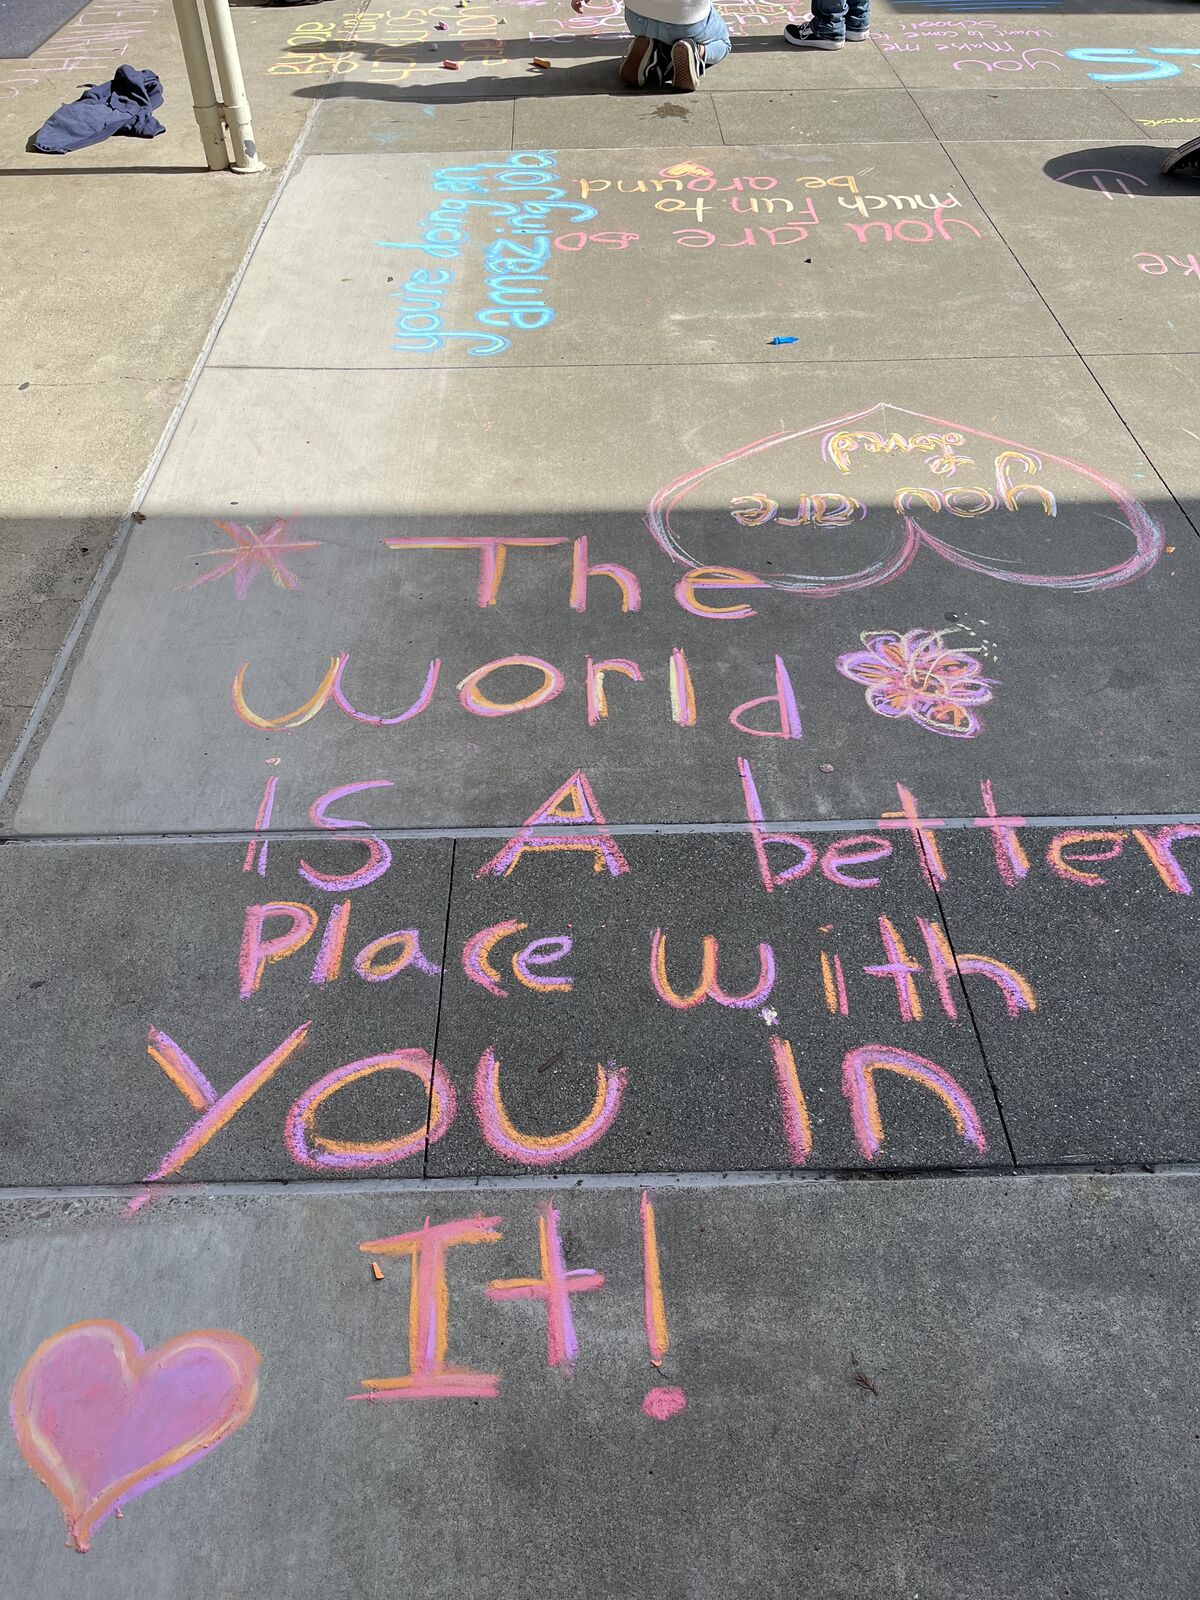 The
world
is A better
Place with
You In
It!
you are
loved
you're doing an
amazing job.
you are so
much fun to
be around.
you make me
want to come to
school!